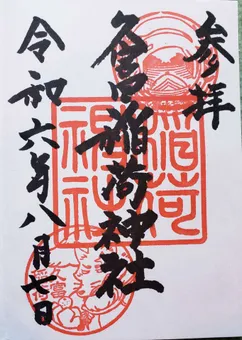 参拝
久富稲荷神社
令和六年八月七日
稲荷
神社
久富